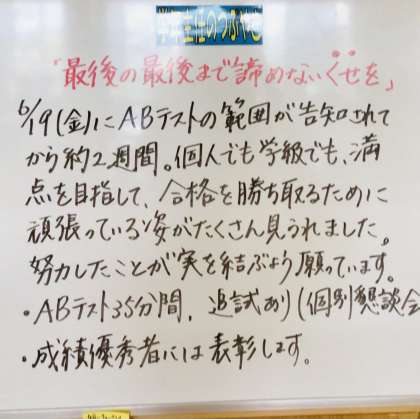 学年主任のつぶやき
「最後の最後まで諦めないくせを」
6/19(金)にABテストの範囲が告知されて
から約2週間。個人でも学級でも、満
点を目指して、合格を勝ち取るために
頑張っている姿がたくさん見うれました。
努力したことが実を結ぶよう願っています。
・ABテスト35分間、追試あり(個別懇談会
・成績優秀者には表彰します。